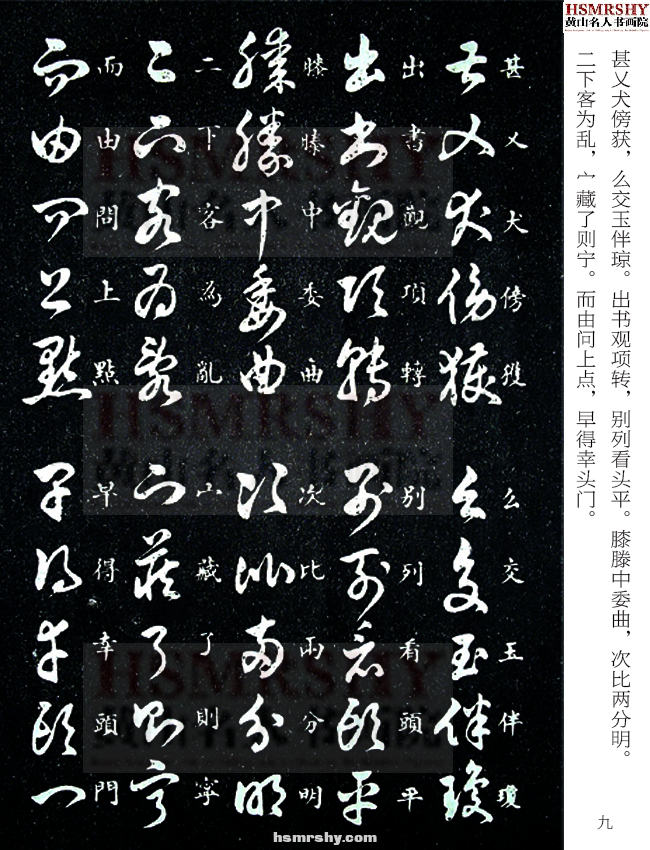 HSMRSHY
黄山名人书画院
甚乂犬傍获，么交玉伴琼。出书观项转，别列看头平。膝滕中委曲，次比两分明。
二下客为乱，宀藏了则宁。而由问上点，早得幸头门。
甚乂犬傍獲 么交玉伴瓊
出書觀項轉 别列看頭平
膝滕中委曲 次比兩分明
二下客為亂 宀藏了則寧
而由問上點 早得幸頭門
九
HSMRSHY
黄山名人书画院
HSMRSHY
黄山名人书画院
HSMRSHY
黄山名人书画院
hsmrshy.com